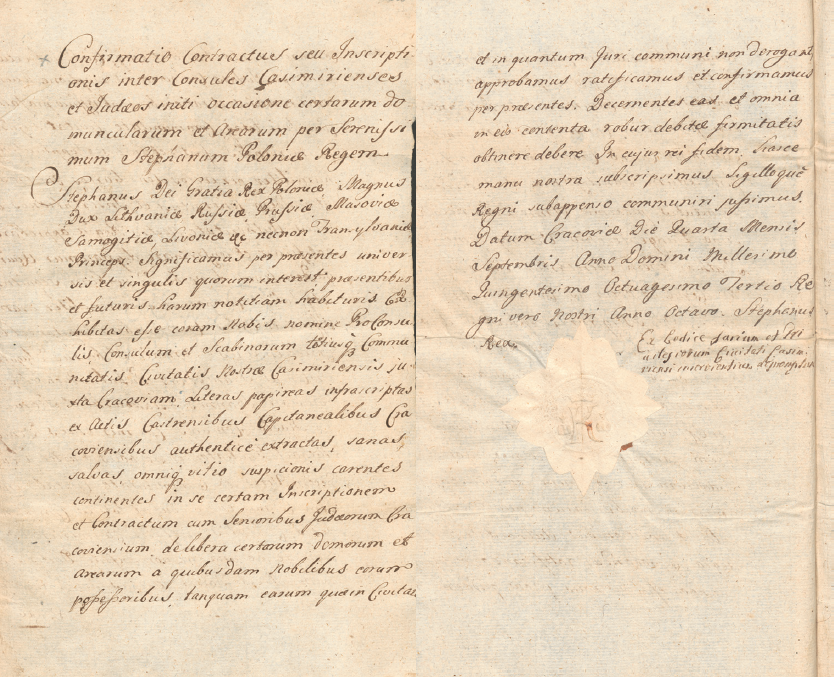 Confirmatio Contractus seu Inscripti
onis inter Consules Casimirienses
et Judæos initi occasione certarum do
muncularum et Arearum per Serenissi
mum Stephanum Poloniæ Regem
Stephanus Dei Gratia Rex Poloniæ Magnus
Dux Lithvaniæ Russiæ Prussiæ Masoviæ
Samogitiæ, Livoniæ &c necnon Transylvaniæ
Princeps. Significamus per præsentes univer
sis et singulis quorum interest præsentibus
et futuris harum notitiam habituris Ex
hibitas esse coram Nobis nomine ProConsu
lis, Consulum et Scabinorum totiusq Commu
nitatis Civitatis Nostræ Casimiriensis ju
xta Cracoviam Literas papireas infrascriptas
ex Actis Castrensibus Capitanealibus Cra
coviensibus authenticè extractas, sanas,
salvas, omniq vitio suspicionis carentes
continentes in se certam Inscriptionem
et Contractum cum Senioribus Judæorum Cra
coviensium de libera certarum domorum et
Arearum a quibusdam Nobilibus eorum
possessoribus, tanquam earum quæ in Civitate
et in quantum Juri communi non derogant,
approbamus ratificamus et confirmamus
per præsentes. Decernentes eas et omnia
in eis contenta robur debitæ firmitatis
obtinere debere In cujus rei fidem hasce
manu nostra subscripsimus Sigilloquè
Regni subappenso communiri jussimus.
Datum Cracoviæ Die Quarta Mensis
Septembris Anno Domini Millesimo
Quingentesimo Octuagesimo Tertio Re
gni vero Nostri Anno Octavo. Stephanus
Rex.
Ex Codice Jurium et Pri
Civitati Casimi
riensi